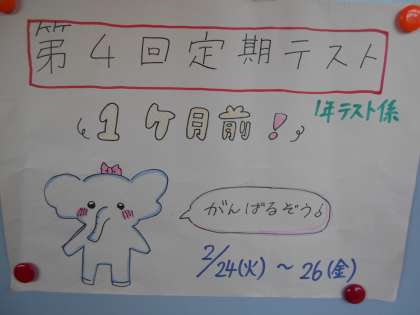 第4回定期テスト
1ヶ月前!
1年テスト係
がんばるぞう♪
2/24(火)～26(金)